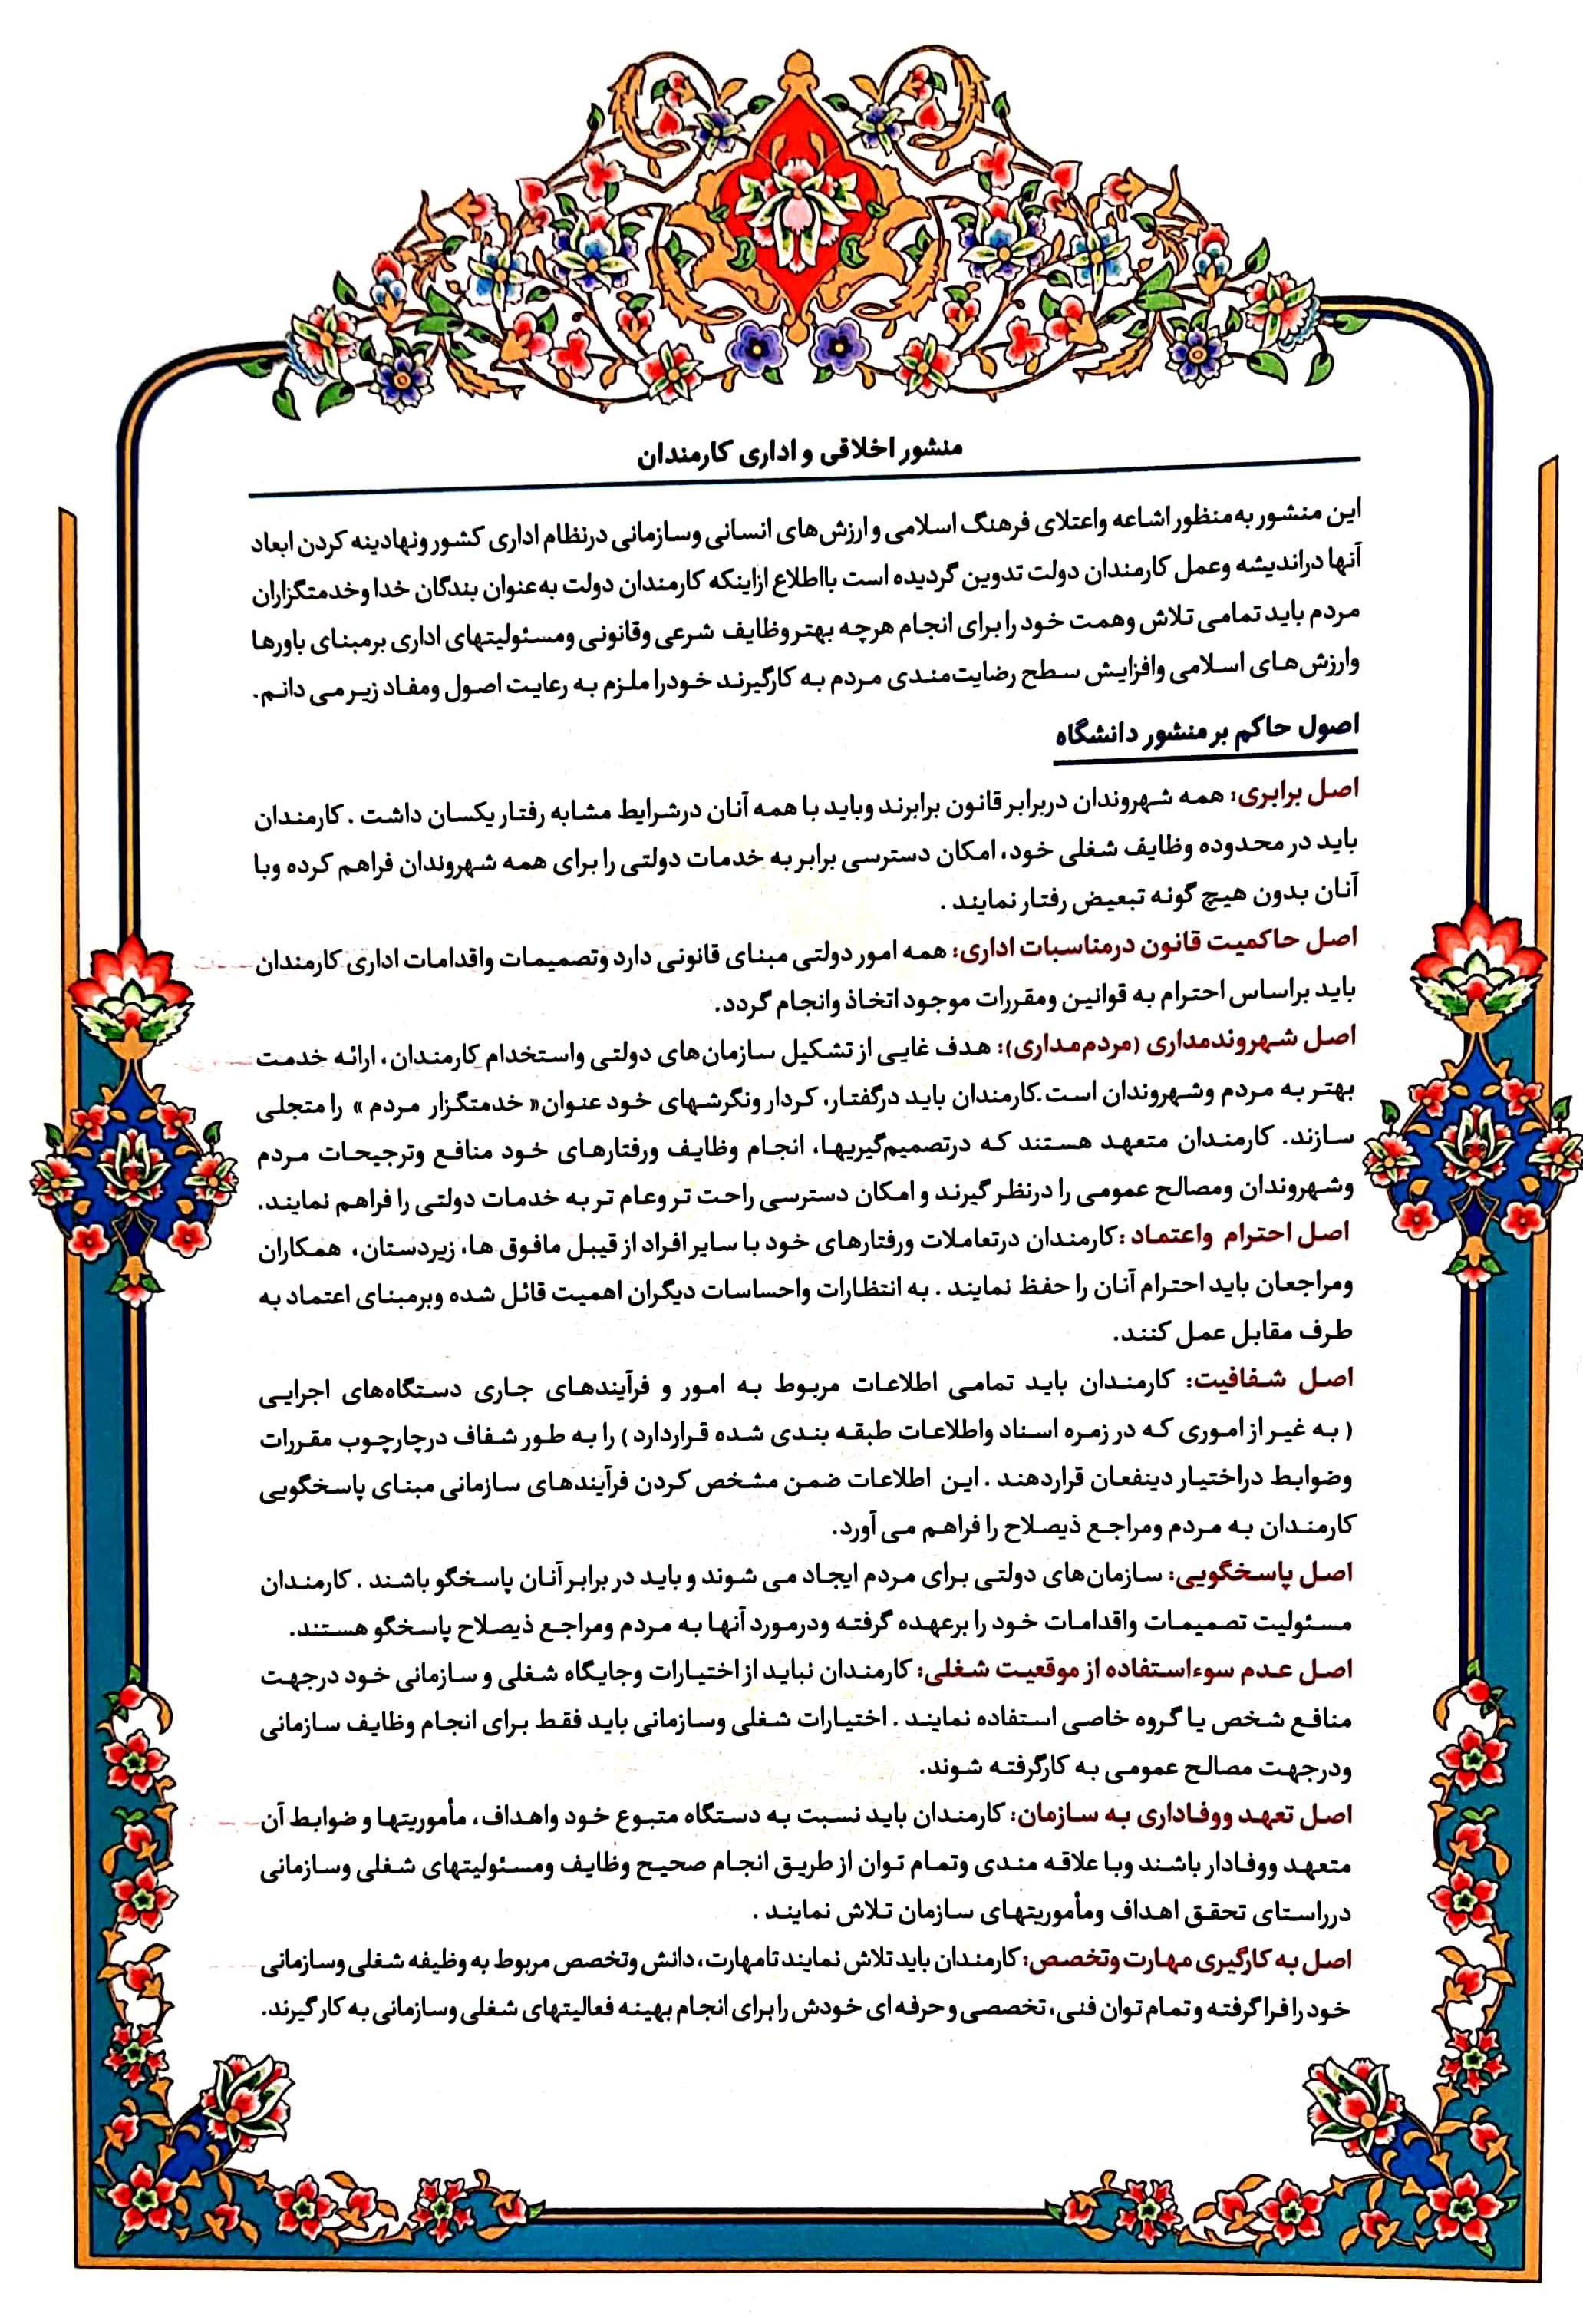 منشور اخلاقی و اداری کارمندان
این منشور به‌منظور اشاعه واعتلای فرهنگ اسلامی و ارزش‌های انسانی وسازمانی درنظام اداری کشور ونهادینه کردن ابعاد
آنها دراندیشه وعمل کارمندان دولت تدوین گردیده است بااطلاع ازاینکه کارمندان دولت به‌عنوان بندگان خدا وخدمتگزاران
مردم باید تمامی تلاش وهمت خود را برای انجام هرچه بهتر وظایف شرعی وقانونی ومسئولیتهای اداری برمبنای باورها
وارزش‌های اسلامی وافزایش سطح رضایت‌مندی مردم به کارگیرند خودرا ملزم به رعایت اصول ومفاد زیر می دانم.
اصول حاکم بر منشور دانشگاه
اصل برابری: همه شهروندان دربرابر قانون برابرند وباید با همه آنان درشرایط مشابه رفتار یکسان داشت . کارمندان
باید در محدوده وظایف شغلی خود، امکان دسترسی برابر به خدمات دولتی را برای همه شهروندان فراهم کرده وبا
آنان بدون هیچ گونه تبعیض رفتار نمایند .
اصل حاکمیت قانون درمناسبات اداری: همه امور دولتی مبنای قانونی دارد وتصمیمات واقدامات اداری کارمندان
باید براساس احترام به قوانین ومقررات موجود اتخاذ وانجام گردد.
اصل شهروندمداری (مردم‌مداری): هدف غایی از تشکیل سازمان‌های دولتی واستخدام کارمندان، ارائه خدمت
بهتر به مردم وشهروندان است.کارمندان باید درگفتار، کردار ونگرشهای خود عنوان« خدمتگزار مردم » را متجلی
سازند. کارمندان متعهد هستند که درتصمیم‌گیریها، انجام وظایف ورفتارهای خود منافع وترجیحات مردم
وشهروندان ومصالح عمومی را درنظر گیرند و امکان دسترسی راحت تر وعام تر به خدمات دولتی را فراهم نمایند.
اصل احترام واعتماد :کارمندان درتعاملات ورفتارهای خود با سایر افراد از قیبل مافوق ها، زیردستان، همکاران
ومراجعان باید احترام آنان را حفظ نمایند . به انتظارات واحساسات دیگران اهمیت قائل شده وبرمبنای اعتماد به
طرف مقابل عمل کنند.
اصل شفافیت: کارمندان باید تمامی اطلاعات مربوط به امور و فرآیندهای جاری دستگاه‌های اجرایی
( به غیر از اموری که در زمره اسناد واطلاعات طبقه بندی شده قراردارد ) را به طور شفاف درچارچوب مقررات
وضوابط دراختیار دینفعان قراردهند . این اطلاعات ضمن مشخص کردن فرآیندهای سازمانی مبنای پاسخگویی
کارمندان به مردم ومراجع ذیصلاح را فراهم می آورد.
اصل پاسخگویی: سازمان‌های دولتی برای مردم ایجاد می شوند و باید در برابر آنان پاسخگو باشند . کارمندان
مسئولیت تصمیمات واقدامات خود را برعهده گرفته ودرمورد آنها به مردم ومراجع ذیصلاح پاسخگو هستند.
اصل عدم سوءاستفاده از موقعیت شغلی: کارمندان نباید از اختیارات وجایگاه شغلی و سازمانی خود درجهت
منافع شخص یا گروه خاصی استفاده نمایند . اختیارات شغلی وسازمانی باید فقط برای انجام وظایف سازمانی
ودرجهت مصالح عمومی به کارگرفته شوند.
اصل تعهد ووفاداری به سازمان: کارمندان باید نسبت به دستگاه متبوع خود واهداف، مأموریتها و ضوابط آن
متعهد ووفادار باشند وبا علاقه مندی وتمام توان از طریق انجام صحیح وظایف ومسئولیتهای شغلی وسازمانی
درراستای تحقق اهداف ومأموریتهای سازمان تلاش نمایند .
اصل به کارگیری مهارت وتخصص: کارمندان باید تلاش نمایند تامهارت، دانش وتخصص مربوط به وظیفه شغلی وسازمانی
خود را فرا گرفته و تمام توان فنی، تخصصی و حرفه ای خودش را برای انجام بهینه فعالیتهای شغلی وسازمانی به کار گیرند.